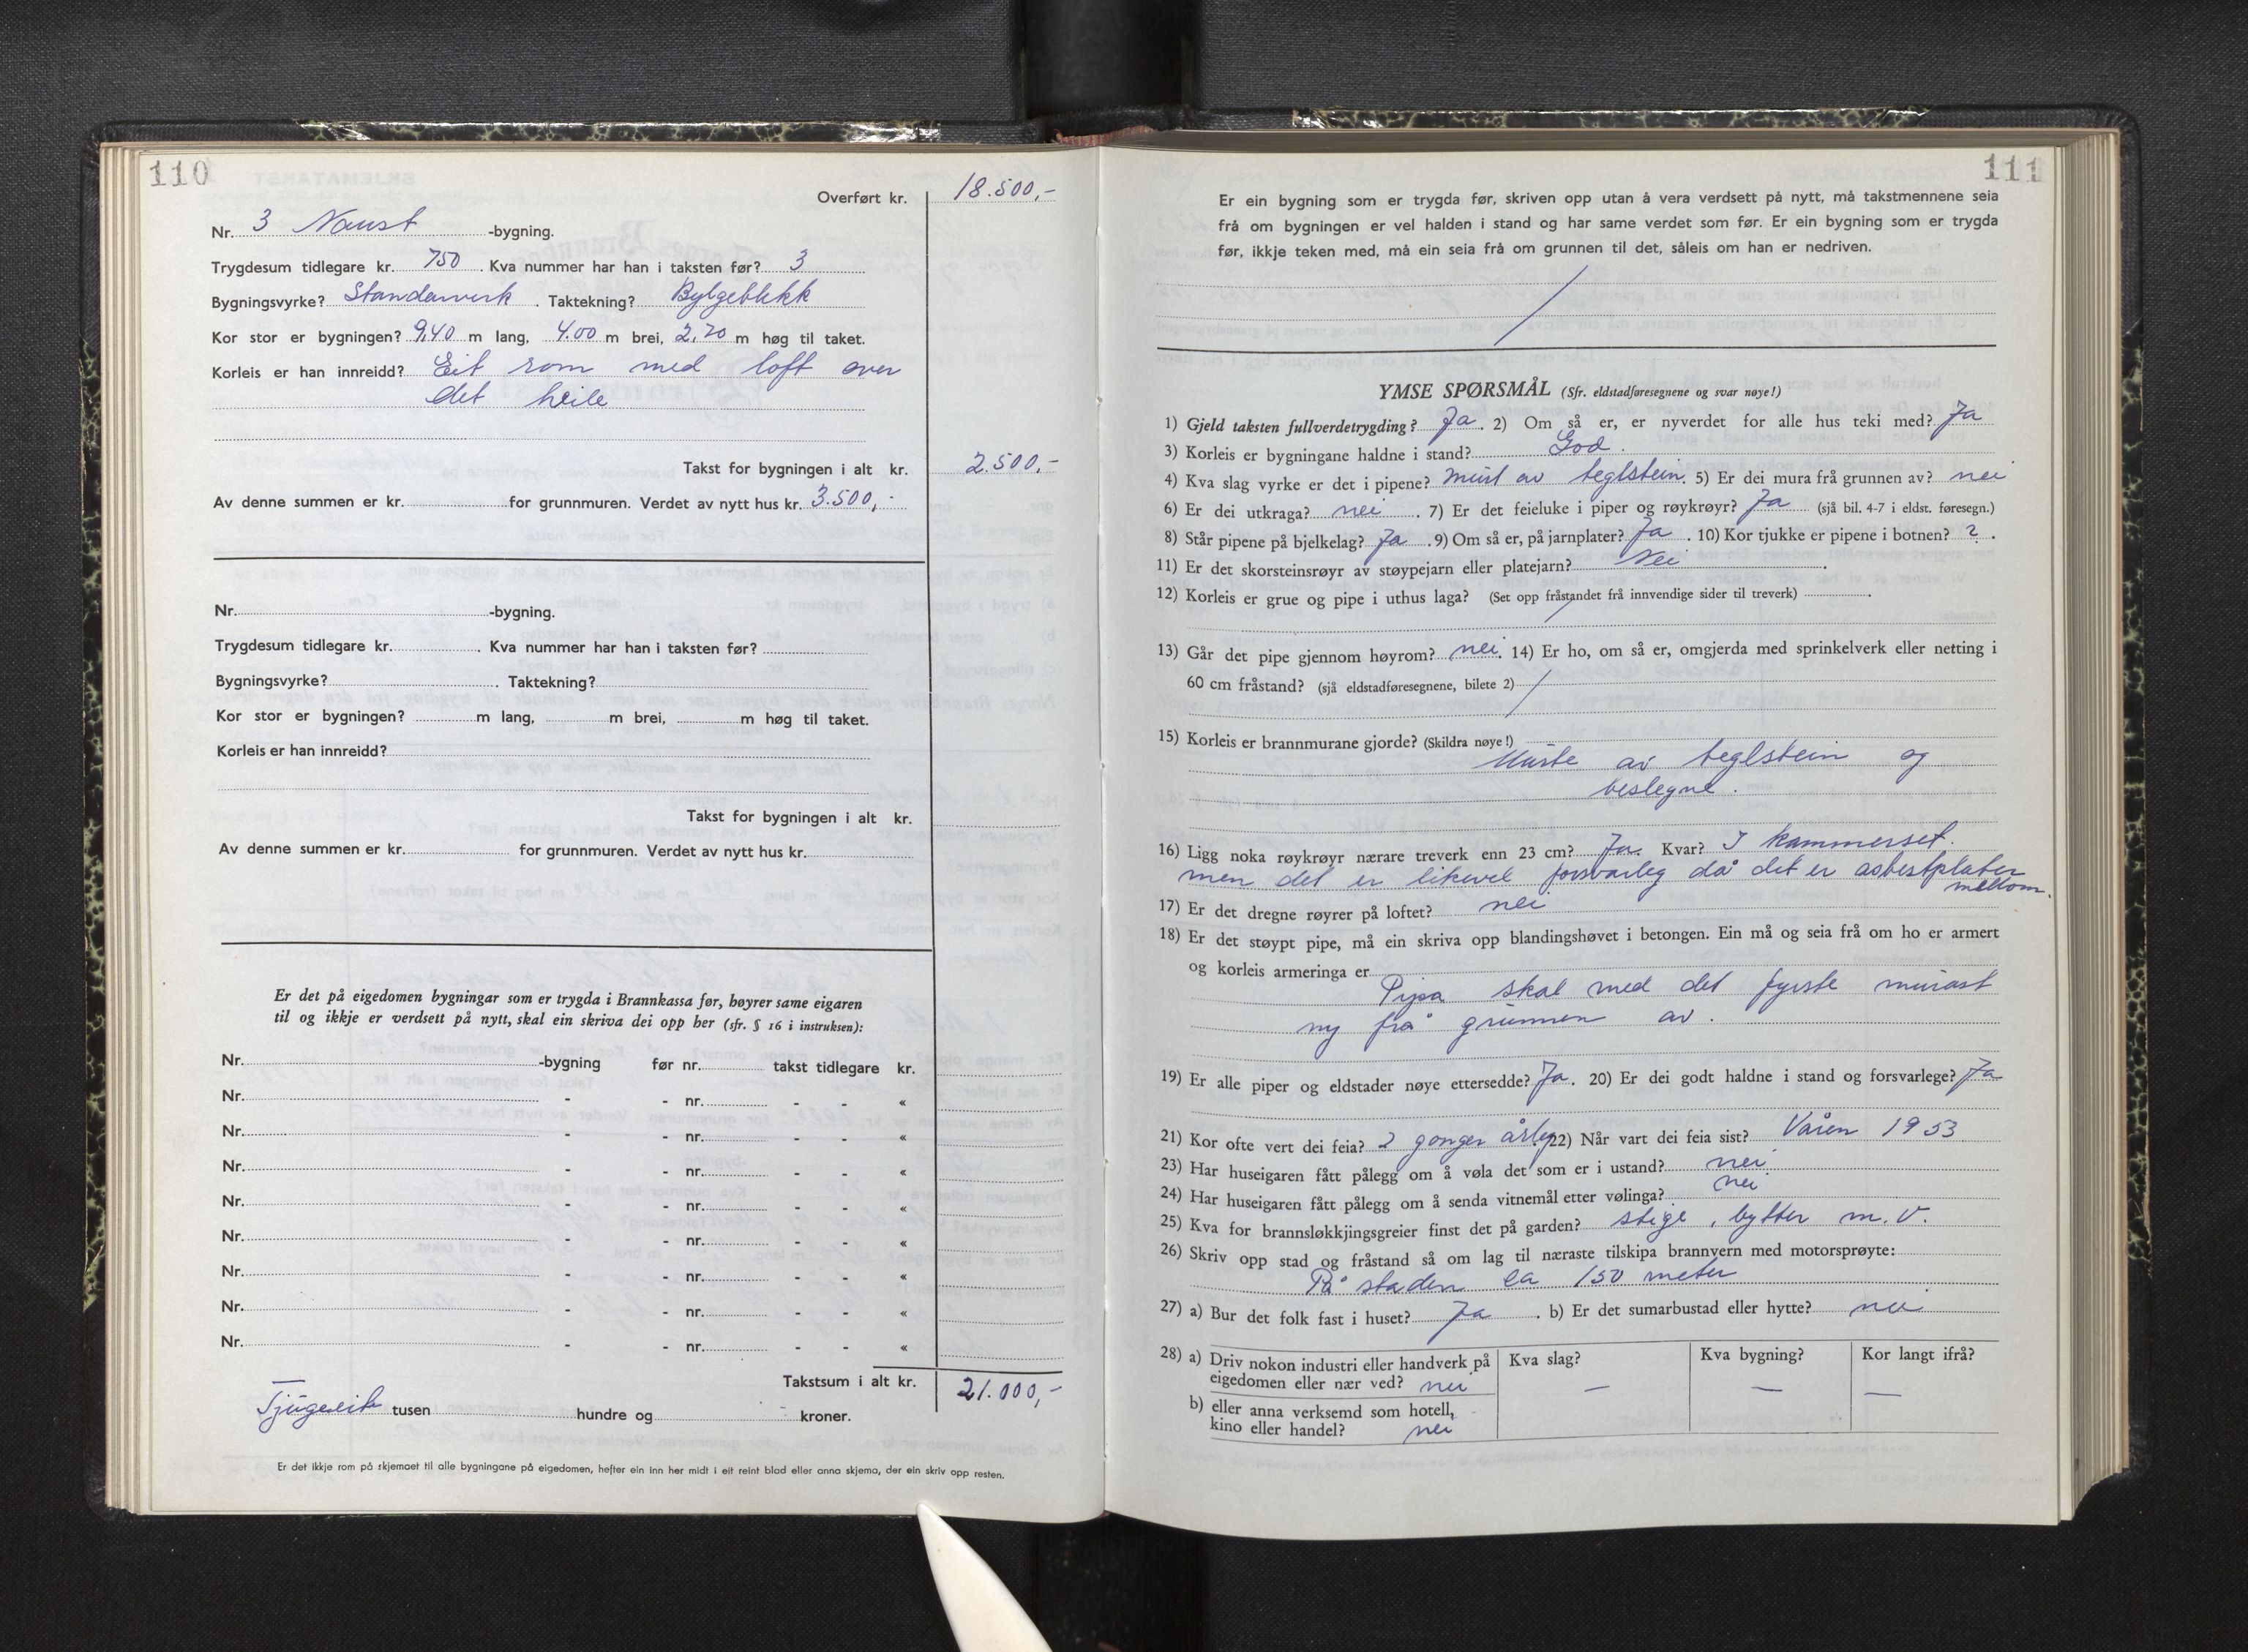 110
Overført kr. 18.500,-
Nr. 3 Naust -bygning.
Trygdesum tidlegare kr. 750. Kva nummer har han i taksten før? 3
Bygningsvyrke? Standarverk. Taktekning? Bylgeblekk
Kor stor er bygningen? 9,40 m lang, 4.00 m brei, 2,70 m høg til taket.
Korleis er han innreidd? Eit rom med loft over
det heile
Takst for bygningen i alt kr. 2.500,-
Av denne summen er kr. for grunnmuren. Verdet av nytt hus kr. 3.500,-
Nr. -bygning.
Trygdesum tidlegare kr. . Kva nummer har han i taksten før?
Bygningsvyrke? . Taktekning?
Kor stor er bygningen? m lang, m brei, m høg til taket.
Korleis er han innreidd?
Takst for bygningen i alt kr.
Av denne summen er kr. for grunnmuren. Verdet av nytt hus kr.
Er det på eigedomen bygningar som er trygda i Brannkassa før, høyrer same eigaren
til og ikkje er verdsett på nytt, skal ein skriva dei opp her (sfr. § 16 i instruksen):
Nr. -bygning før nr. takst tidlegare kr.
Nr. - - nr. - - «
Nr. - - nr. - - «
Nr. - - nr. - - «
Nr. - - nr. - - «
Nr. - - nr. - - «
Nr. - - nr. - - «
Nr. - - nr. - - «
Nr. - - nr. - - «
Takstsum i alt kr. 21.000,-
Tjugeeit tusen hundre og - kroner.
Er det ikkje rom på skjemaet til alle bygningane på eigedomen, hefter ein inn her midt i eit reint blad eller anna skjema, der ein skriv opp resten.
111
Er ein bygning som er trygda før, skriven opp utan å vera verdsett på nytt, må takstmennene seia
frå om bygningen er vel halden i stand og har same verdet som før. Er ein bygning som er trygda
før, ikkje teken med, må ein seia frå om grunnen til det, såleis om han er nedriven.
/
YMSE SPØRSMÅL (Sfr. eldstadføresegnene og svar nøye!)
1) Gjeld taksten fullverdetrygding? Ja. 2) Om så er, er nyverdet for alle hus teki med? Ja
3) Korleis er bygningane haldne i stand? God.
4) Kva slag vyrke er det i pipene? Murt av teglstein. 5) Er dei mura frå grunnen av? nei
6) Er dei utkraga? nei. 7) Er det feieluke i piper og røykrøyr? Ja (sjå bil. 4-7 i eldst. føresegn.)
8) Står pipene på bjelkelag? Ja. 9) Om så er, på jarnplater? Ja. 10) Kor tjukke er pipene i botnen? 2.
11) Er det skorsteinsrøyr av støypejarn eller platejarn? Nei.
12) Korleis er grue og pipe i uthus laga? (Set opp fråstandet frå innvendige sider til treverk) .
/
13) Går det pipe gjennom høyrom? nei. 14) Er ho, om så er, omgjerda med sprinkelverk eller netting i
60 cm fråstand? (sjå eldstadføresegnene, bilete 2) /
15) Korleis er brannmurane gjorde? (Skildra nøye!)
Murte av teglstein og
beslegne.
16) Ligg noka røykrøyr nærare treverk enn 23 cm? Ja. Kvar? I kammerset.
men det er likevel forsvarleg då det er asbestplater
mellom.
17) Er det dregne røyrer på loftet? nei
18) Er det støypt pipe, må ein skriva opp blandingshøvet i betongen. Ein må og seia frå om ho er armert
og korleis armeringa er
Pipa skal med det fyrste murast
ny frå grunnen av.
19) Er alle piper og eldstader nøye ettersedde? Ja. 20) Er dei godt haldne i stand og forsvarlege? Ja
21) Kor ofte vert dei feia? 2 gonger årleg 22) Når vart dei feia sist? Våren 1953
23) Har huseigaren fått pålegg om å vøla det som er i ustand? nei
24) Har huseigaren fått pålegg om å senda vitnemål etter vølinga? nei
25) Kva for brannsløkkjingsgreier finst det på garden? stige, bytter m.v.
26) Skriv opp stad og fråstand så om lag til næraste tilskipa brannvern med motorsprøyte:
På staden ca 150 meter
27) a) Bur det folk fast i huset? Ja. b) Er det sumarbustad eller hytte? nei
28) a) Driv nokon industri eller handverk på
eigedomen eller nær ved? nei
Kva slag? —
Kva bygning? —
Kor langt ifrå? —
b) eller anna verksemd som hotell,
kino eller handel? nei